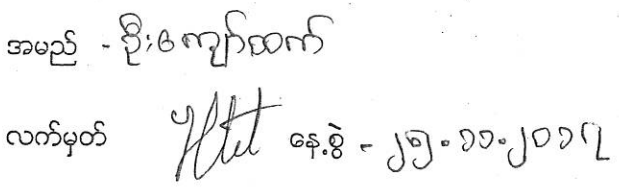 အမည် - ဦးကျော်ထက်
လက်မှတ် Htet နေ့စွဲ - ၂၅.၁၁.၂၀၁၇